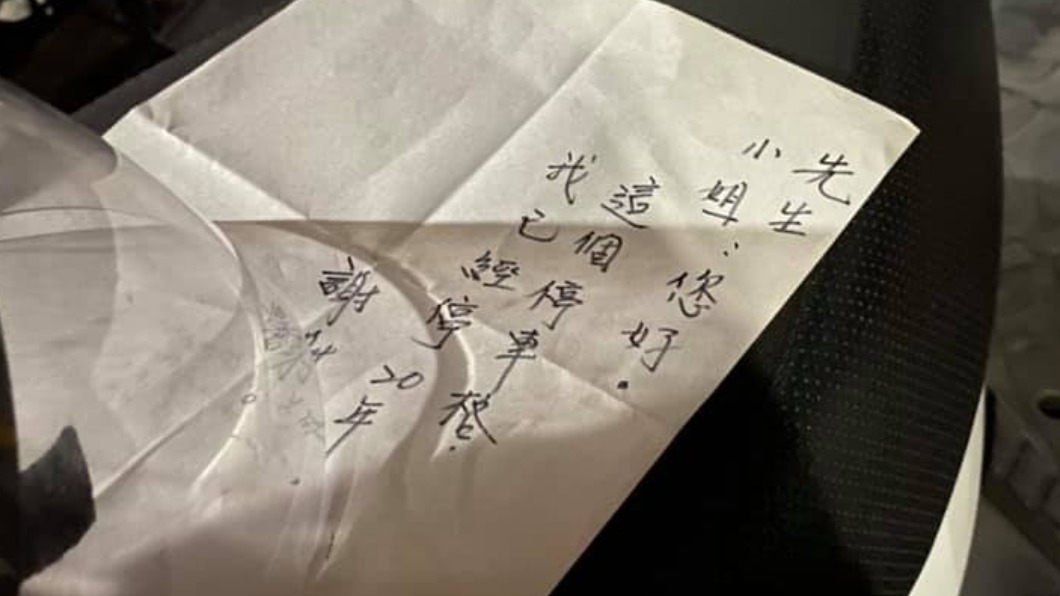 先生
小姐：您好.
這個停車格.
我已經停20年
謝謝